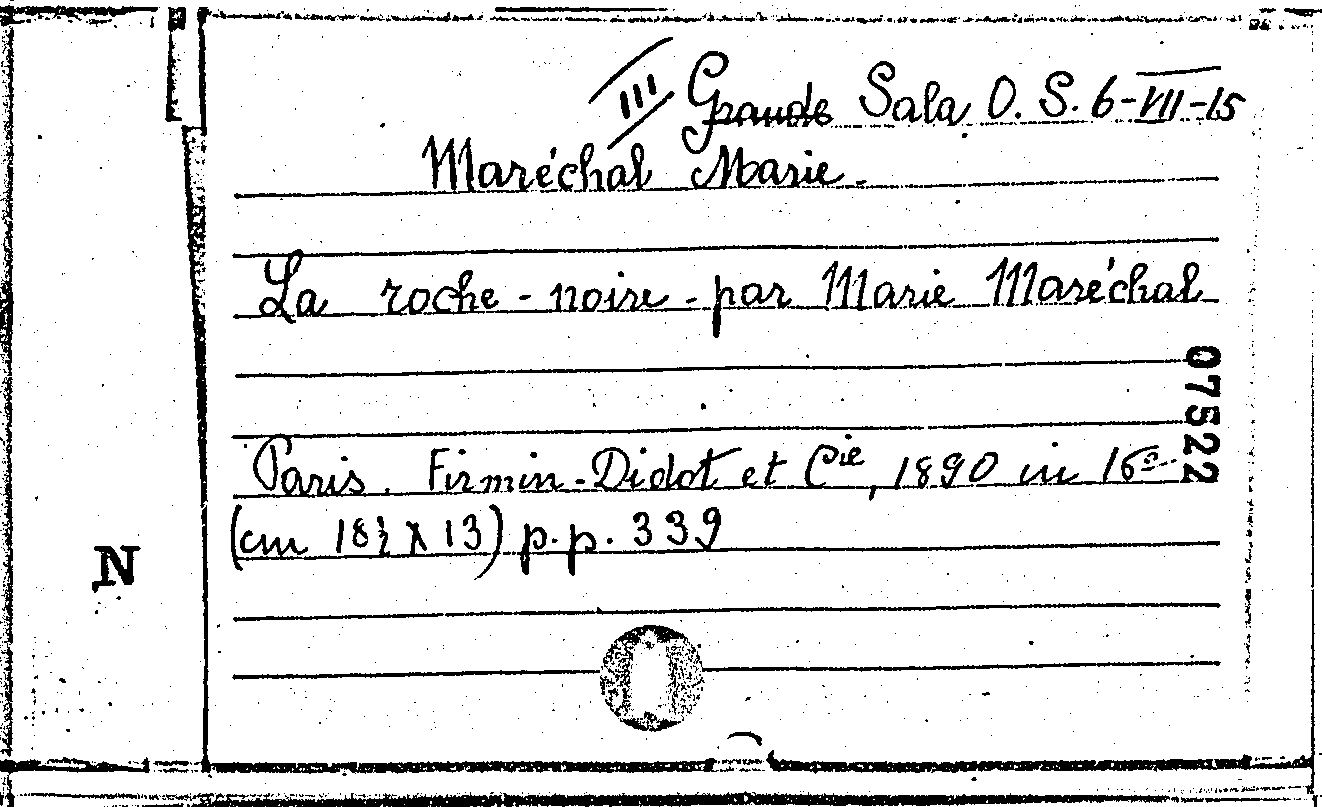 III Grande Sala O. S. 6-VII-15
Maréchal Marie.
La roche-noire - par Marie Maréchal
07522
Paris. Firmin-Didot et Cie, 1890 in 16º
(cm 18½ X 13) p.p. 339
N